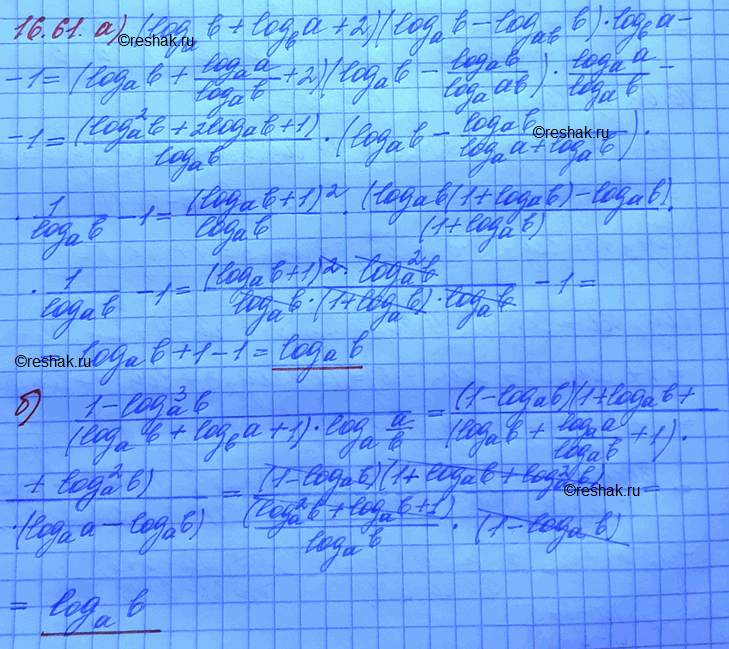 16.61. а) (log_a b + log_b a + 2)(log_a b − log_ab b) · log_b a −
©reshak.ru
©reshak.ru
− 1 = (log_a b + log_a a / log_a b + 2)(log_a b − log_a b / log_a ab) · log_a a / log_a b −
− 1 = (log_a² b + 2log_a b + 1) / log_a b · (log_a b − log_a b / (log_a a + log_a b)) ·
©reshak.ru
· 1 / log_a b − 1 = (log_a b + 1)² / log_a b · (log_a b(1 + log_a b) − log_a b) / (1 + log_a b) ·
· 1 / log_a b − 1 = (log_a b + 1)² · log_a² b / (log_a b · (1 + log_a b) · log_a b) − 1 =
= log_a b + 1 − 1 = log_a b
©reshak.ru
б) (1 − log_a³ b) / ((log_a b + log_b a + 1) · log_a a/b) = (1 − log_a b)(1 + log_a b + / (log_a b + log_a a / log_a b + 1) ·
+ log_a² b) / · (log_a a − log_a b) = (1 − log_a b)(1 + log_a b + log_a² b) / ((log_a² b + log_a b + 1) / log_a b · (1 − log_a b)) =
©reshak.ru
= log_a b